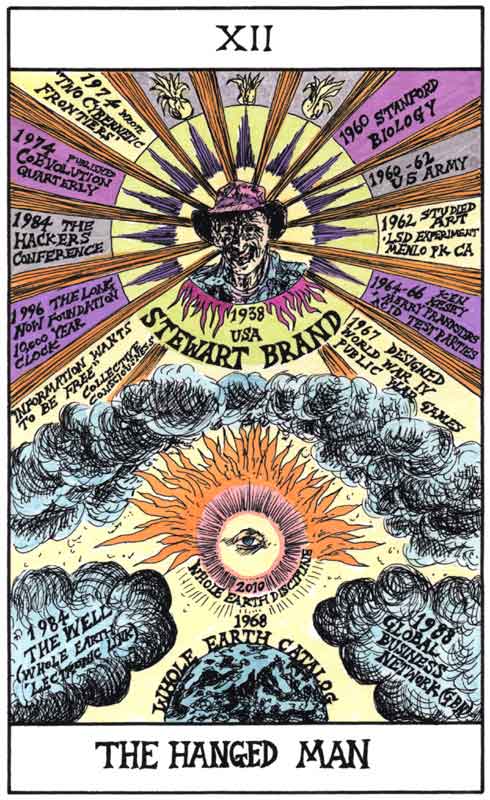 XII
1974 WROTE
"TWO CYBERNETIC
FRONTIERS"
1974 PUBLISHED
COEVOLUTION
QUARTERLY
1984 THE
HACKERS
CONFERENCE
1996 THE LONG
NOW FOUNDATION
10,000 YEAR
CLOCK
INFORMATION WANTS
TO BE FREE
COLLECTIVE
CONSCIOUSNESS
1960 STANFORD
BIOLOGY
1960-62
US ARMY
1962 STUDIED
ART
LSD EXPERIMENT
MENLO PK. CA
1964-66 KEN
KESEY
MERRY PRANKSTERS
ACID TEST PARTIES
1967 DESIGNED
WORLD WAR IV
PUBLIC WAR GAMES
1938
USA
STEWART BRAND
2010
WHOLE EARTH DISCIPLINE
1968
WHOLE EARTH CATALOG
1984
THE WELL
(WHOLE EARTH
'LECTRONIC LINK)
1988
GLOBAL
BUSINESS
NETWORK (GBN)
THE HANGED MAN